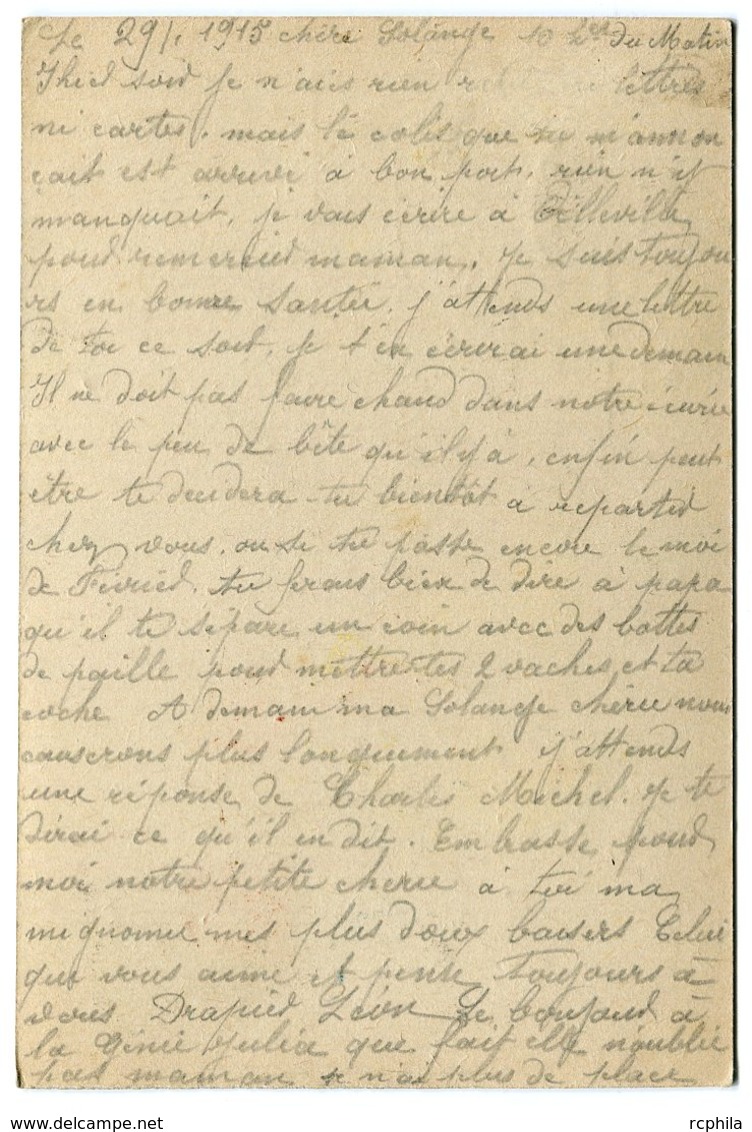 Le 29/1 1915 chère Solange 10 hes du Matin
Ihier soir je n'ais rien lettres
ni cartes, mais le colis que tu m'annon
cait est arrivé à bon port, rien n'y
manquait, je vais écrire à Tilleville
pour remercier maman, je suis toujou
rs en bonne santée, j'attends une lettre
de toi ce soir, je t'en écrirai une demain
Il ne doit pas faire chaud dans notre écurie
avec le peu de bête qu'il y a, enfin peut
être te décidera-tu bientôt à repartir
chez vous, ou si tu passe encore le moi
de Févried, tu ferais bien de dire à papa
qu'il te sépare un coin avec des bottes
de paille pour mettre tes 2 vaches et ta
coche A demain ma Solange chérie nous
causerons plus longuement j'attends
une réponse de Charles Michel, je te
dirai ce qu'il en dit. Embrasse pour
moi notre petite chérie à toi ma
mignonne mes plus doux baisers Celui
qui vous aime et pense toujours à
vous. Drapied Léon Le bonjour à
la Génie Julia que fait elle n'oublie
pas maman je n'ai plus de place
rcphila